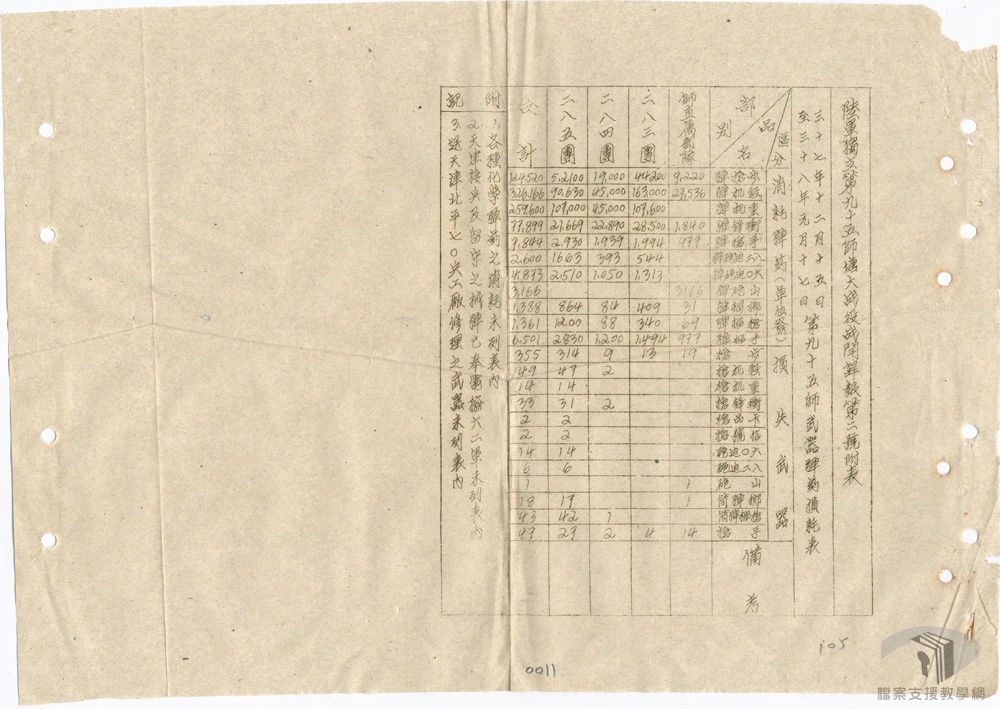 陸軍獨立第九十五師塘大战役战鬥詳報第二號附表
三十七年十二月十五日
至三十八年元月十七日
第九十五師武器彈药損耗表
區分
品名
部别
師直屬部隊
二八三團
二八四團
二八五團
合計
消耗彈药(單位發)
步槍彈 9,220 44200 19,000 52,100 124,520
輕机彈 27,536 163,000 45,000 90,630 326,166
重机彈 109,600 45,000 109,000 259,600
衝鋒彈 1,840 28,500 22,890 27,669
手槍彈 977 1,994 1,939 2,930 9,844
八二迫砲彈 544 393 1663 2,600
六〇迫砲彈 1,313 1,050 2,510 4,873
山砲彈 3166 3,166
擲榴彈 31 409 84 864 1,388
槍榴彈 69 340 88 1200 1,361
手榴彈 977 1,494 1,200 2830 6,501
損失武器
步槍 19 13 9 314 355
輕机槍 2 47 149
重机槍 14 14
衝鋒槍 2 31 33
卡品槍 2 2
信號槍 2 2
六〇迫砲 14 14
八二迫砲 6 6
山砲 1 1
擲彈筒 1 17 18
槍榴彈筒 1 42 43
手槍 14 4 2 29 49
備考
附記
1.各種化学彈药之消耗未列表內
2.天津接兵及留守之械彈已奉電撥六二軍未列表內
3.送天津北平七〇兵工廠修理之武器未列表內
105
0011
檔案支援教學網